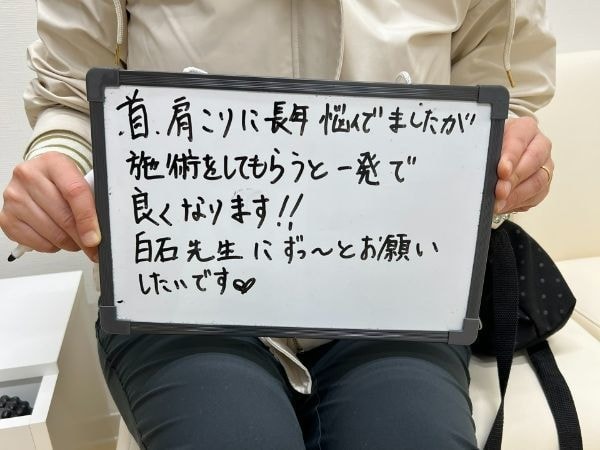 首、肩こりに長年悩んでましたが
施術をしてもらうと一発で
良くなります!!
白石先生にずっ〜とお願い
したいです♥